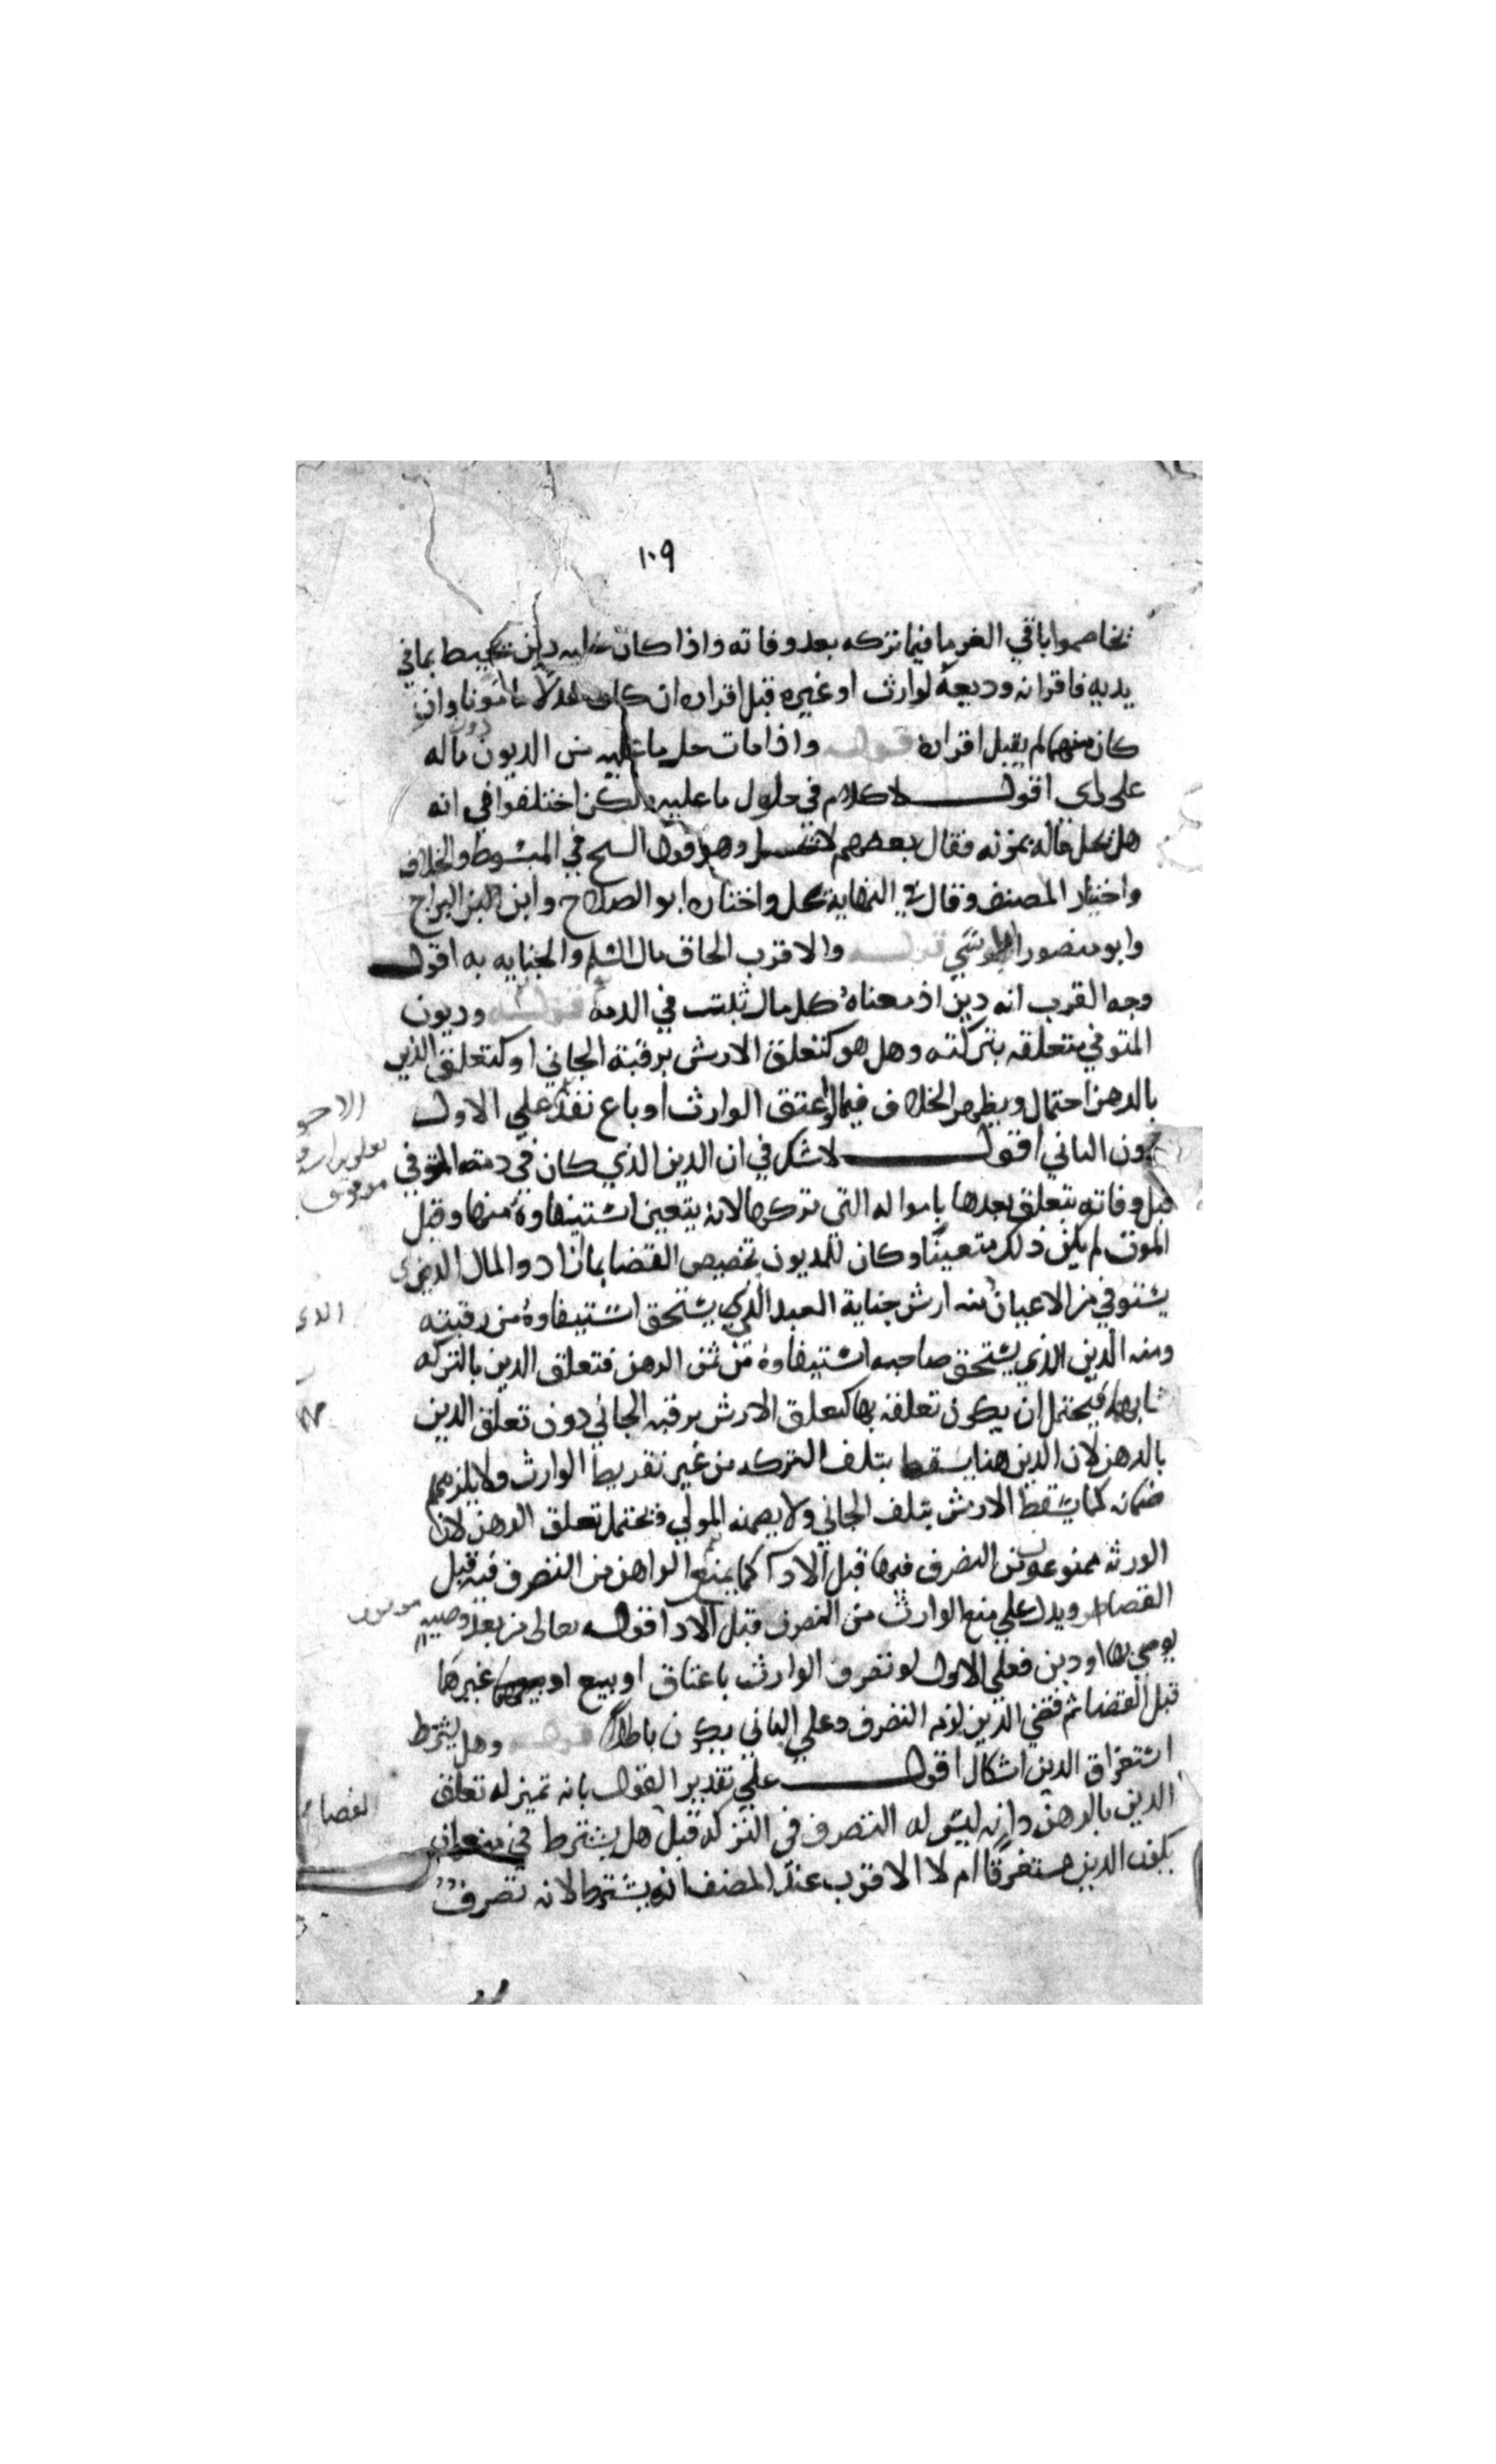 ١٠٩
تخاصموا باقي الغرما فيما تركه بعد وفاته واذا كان عليه دين يحيط بما في
يديه فاقر انه وديعة لوارث او غيره قبل اقراره ان كان عدلا مامونا وان
كان متهما لم يقبل اقراره قوله واذا مات حل ما عليه من الديون دون ماله
على راى اقول لا كلام في حلول ما عليه ولكن اختلفوا في انه
هل يحل ماله بموته فقال بعضهم لا يحل وهو قول الشيخ في المبسوط والخلاف
واختيار المصنف وقال في النهاية يحل واختاره ابو الصلاح وابن البراج
وابو منصور الطوسي قوله والاقرب الحاق مال السلم والجنايه به اقول
وجه القرب انه دين اذ معناه كل مال ثبت في الذمة قوله وديون
المتوفي متعلقه بتركته وهل هو كتعلق الارش برقبة الجاني او كتعلق الدين
بالرهن احتمال ويظهر الخلاف فيما لو اعتق الوارث او باع نفذ علي الاول
دون الثاني اقول لا شك في ان الدين الذي كان في ذمة المتوفي
قبل وفاته يتعلق بعدها بامواله التي تركها لانه يتعين استيفاوه منها وقبل
الموت لم يكن ذلك متعينا وكان للمديون تخصيص القضا بما اراد والمال الذي
يستوفي من الاعيان منه ارش جناية العبد الذي يستحق استيفاوه من رقبته
ومنه الدين الذي يستحق صاحبه استيفاوه من ثمن الرهن فتعلق الدين بالتركه
فيحتمل ان يكون تعلقه بها كتعلق الارش برقبه الجاني دون تعلق الدين
بالرهن لان الدين هنا يسقط بتلف التركه من غير تفريط الوارث ولا يلزمهم
ضمانه كما يسقط الارش بتلف الجاني ولا يضمنه المولي ويحتمل تعلق الرهن لان
الورثه ممنوعون من التصرف فيها قبل الادآ كما يمنع الراهن من التصرف فيه قبل
القضا ويدل علي منع الوارث من التصرف قبل الادا قوله تعالى من بعد وصيه
يوصي بها او دين فعلي الاول لو تصرف الوارث باعتاق او بيع او غيرهما
قبل القضا ثم قضي الدين لزم التصرف وعلي الثاني يكون باطلا قوله وهل يشترط
استغراق الدين اشكال اقول علي تقدير القول بانه تعلق
الدين بالرهن وانه ليس له التصرف في التركه قبل هل يشترط في منعه ان
يكون الدين مستغرقا ام لا الاقرب عند المصنف انه يشترط لانه تصرف